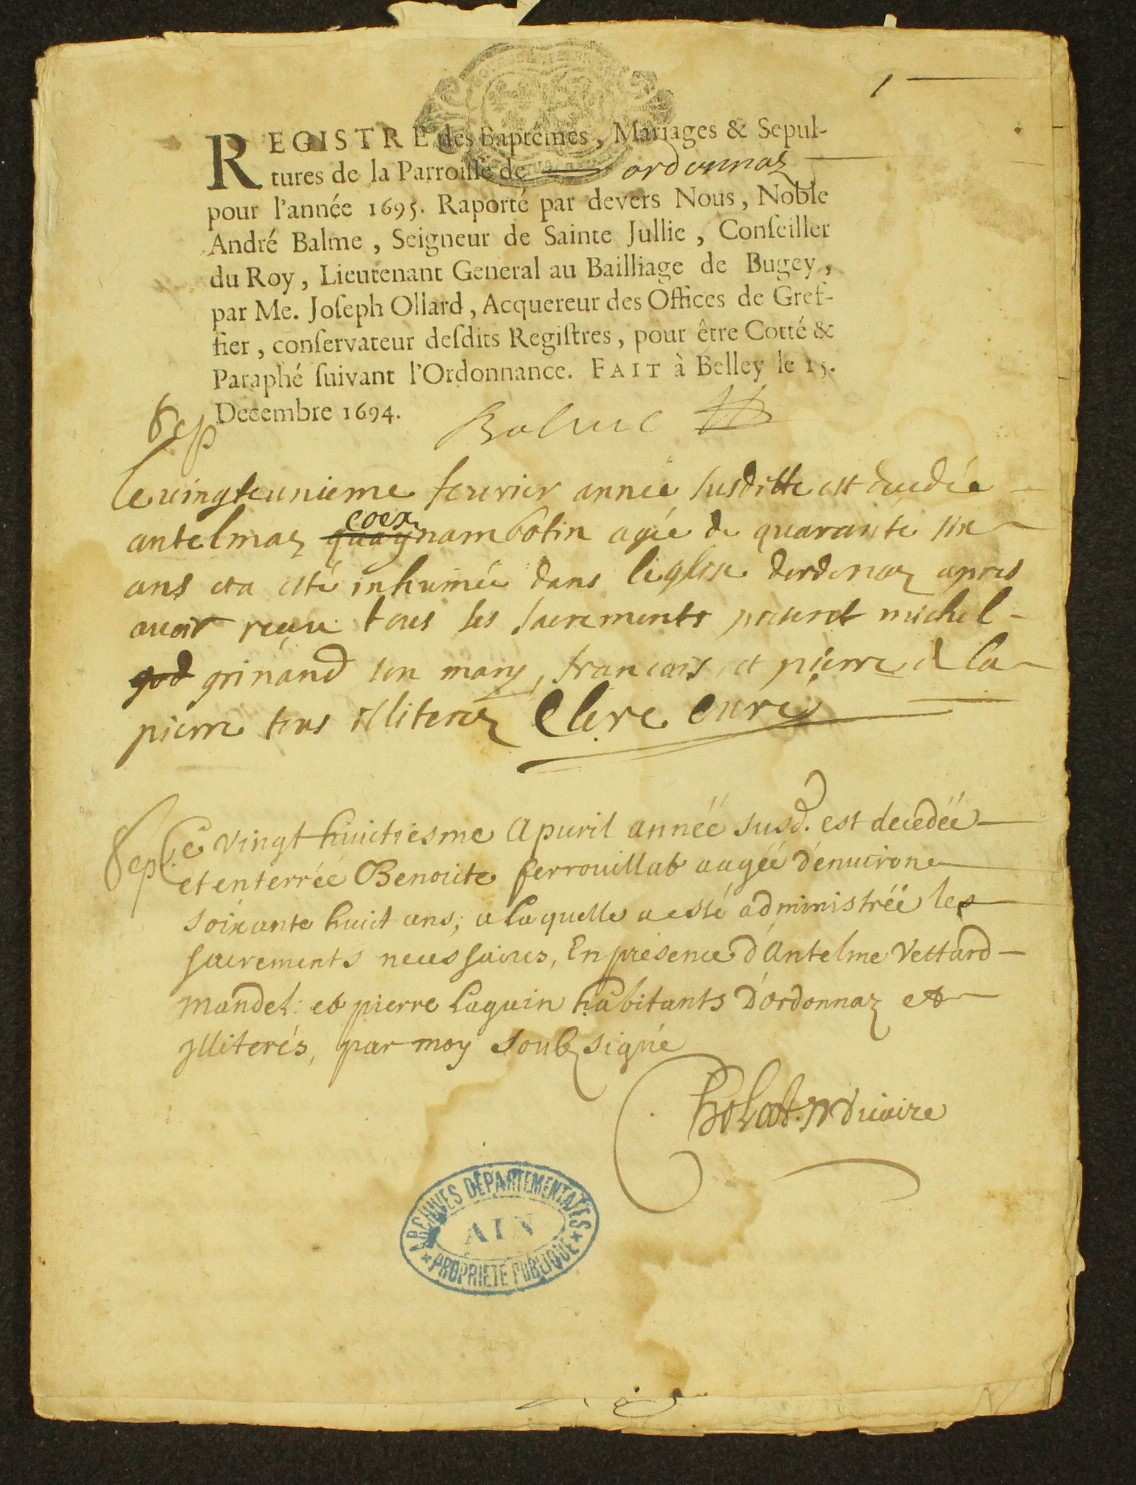 1
REGISTRE des Baptêmes, Mariages & Sepul-
tures de la Parroisse de ordonnaz
pour l'année 1695. Raporté par devers Nous, Noble
André Balme, Seigneur de Sainte Jullie, Conseiller
du Roy, Lieutenant General au Bailliage de Bugey,
par Me. Joseph Ollard, Acquereur des Offices de Gref-
fier, conservateur desdits Registres, pour être Cotté &
Paraphé suivant l'Ordonnance. FAIT à Belley le 15.
Decembre 1694.
Balme
Sep
le vingteunieme feuvrier année susditte est decedée
antelmaz coex nambotin agée de quarante six
ans et a esté inhumée dans leglise dordonaz apres
avoir reçeu tous les sacrements present michel
god grinand son mary, francois et pierre de la
pierre tous illiterez Clerc curé
Sep. Le vingt huictiesme Apuril année susd. est decedéé
et enterréé Benoite ferrouillat aagéé d'enuiron
soixante huit ans, a laquelle a esté administréé les
sacrements necessaires, En presence d'Antelme Vettard
mandel. et pierre Laguin habitants D'ordonnaz et
jlliterés, par moy soubz signé
Cholat vicaire
ARCHIVES DÉPARTEMENTALES
AIN
PROPRIÉTÉ PUBLIQUE